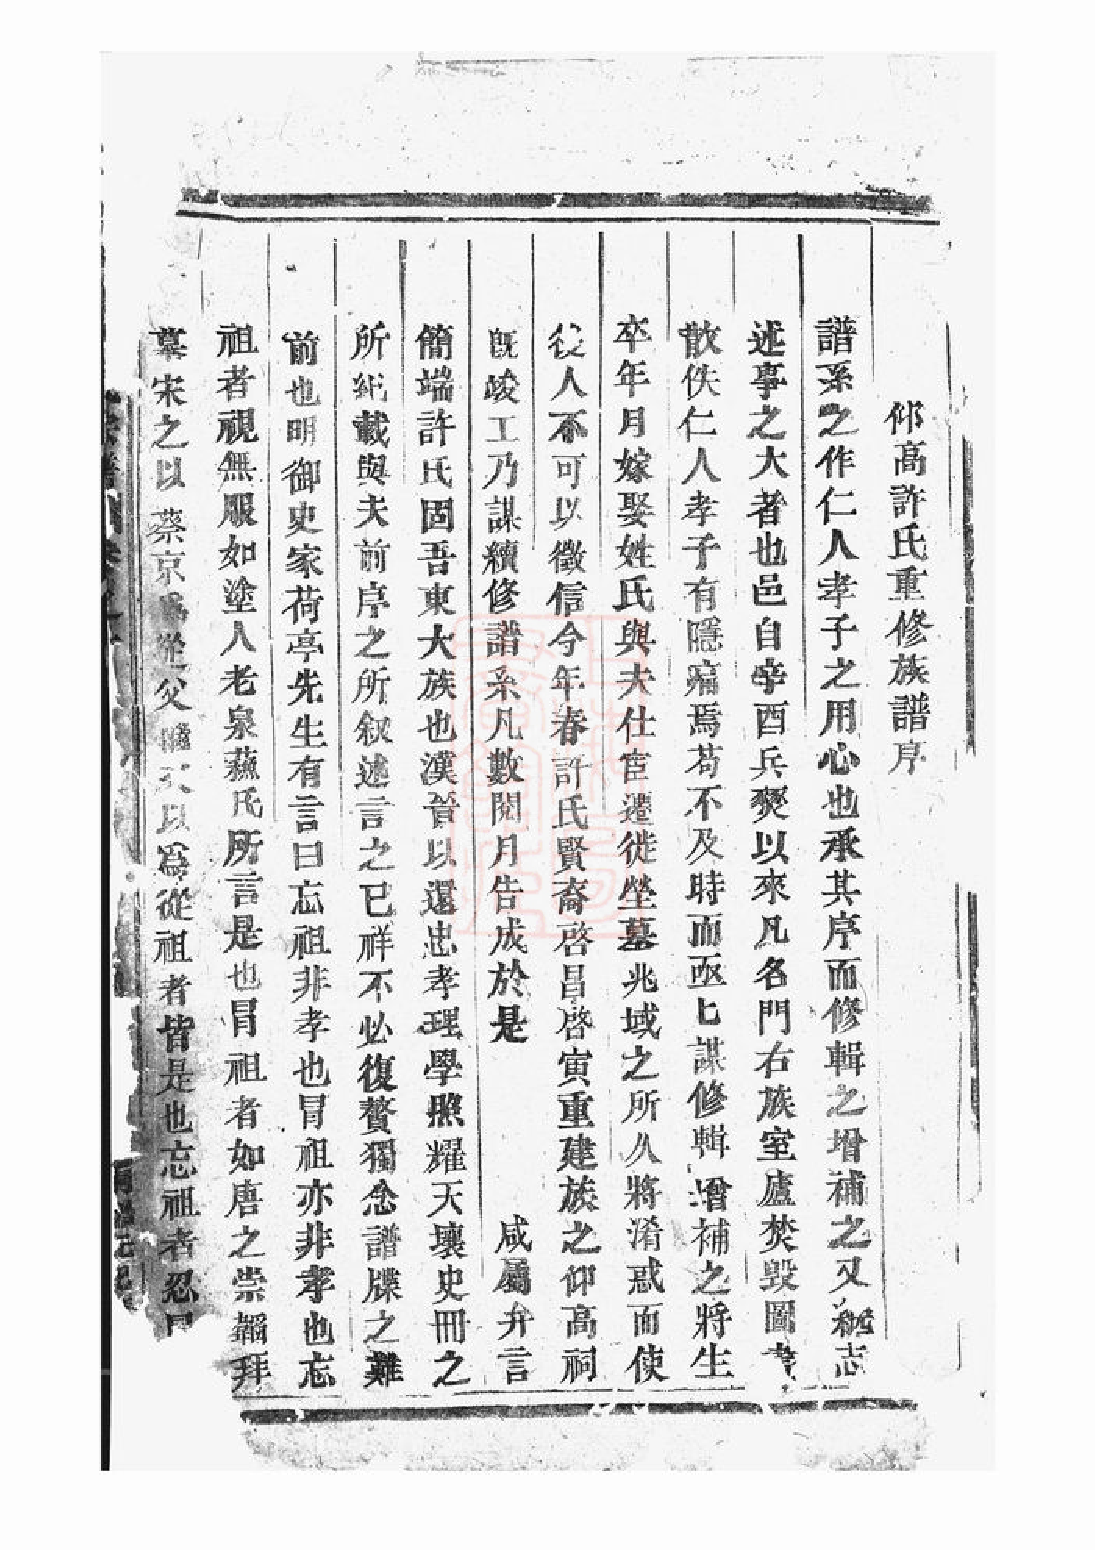 仰高許氏重修族譜序
譜系之作仁人孝子之用心也承其序而修輯之增補之又繼志
述事之大者也邑自辛酉兵燹以來凡名門右族室廬焚毀圖書
散佚仁人孝子有隱痛焉苟不及時而亟亟謀修輯增補之將生
卒年月嫁娶姓氏與夫仕宦遷徙塋墓兆域之所久將淆惑而使
後人不可以徵信今年春許氏賢裔啓昌啓寅重建族之仰高祠
旣竣工乃謀續修譜系凡數閱月告成於是 咸屬弁言
簡端許氏固吾東大族也漢晉以還忠孝理學照耀天壤史冊之
所紀載與夫前序之所叙述言之已祥不必復贅獨念譜牒之難
前也明御史家荷亭先生有言曰忘祖非孝也冒祖亦非孝也忘
祖者視無服如塗人老泉蘇氏所言是也冒祖者如唐之崇韜拜
墓宋之以蔡京爲從父 以爲從祖者皆是也忘祖者忍